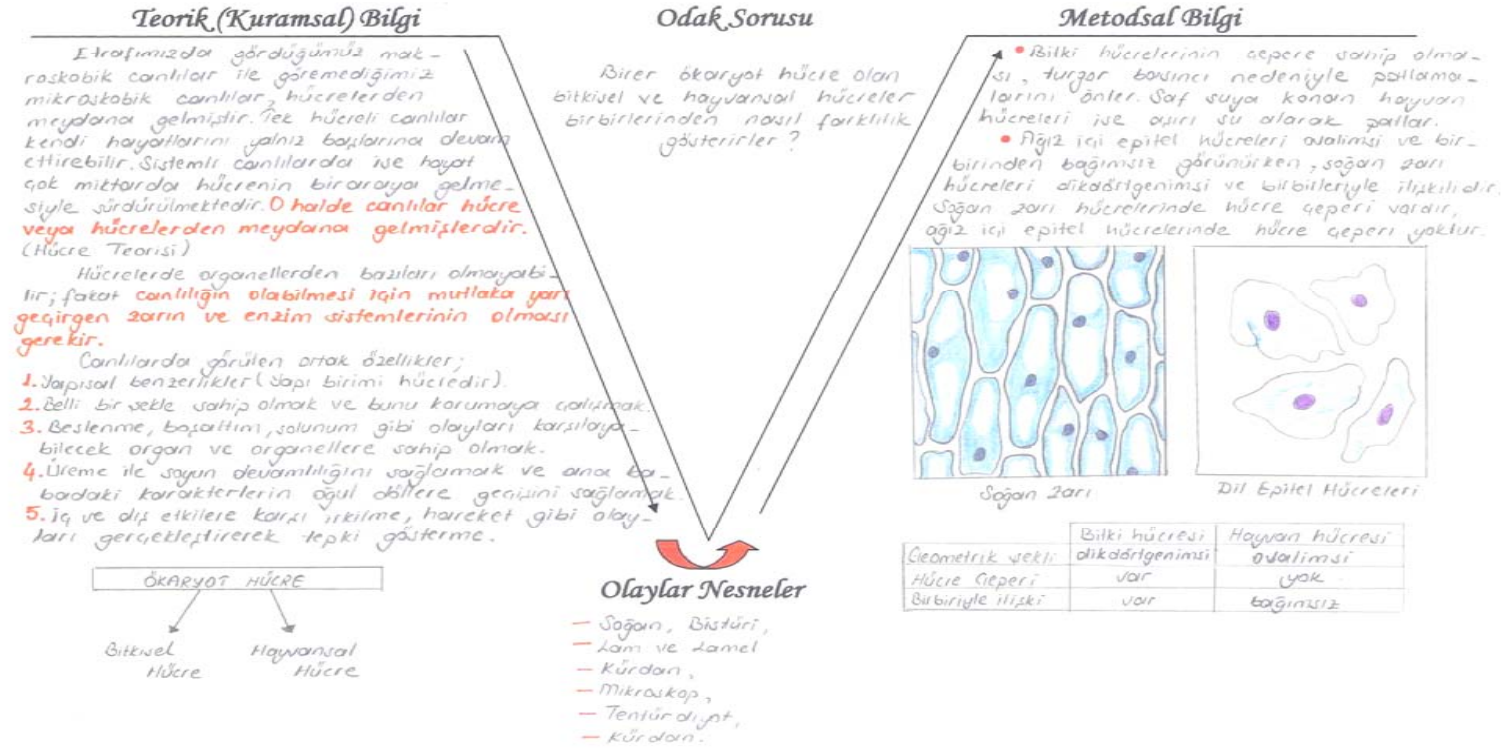 Teorik (Kuramsal) Bilgi
Etrafımızda gördüğümüz mak-
roskobik canlılar ile göremediğimiz
mikroskobik canlılar, hücrelerden
meydana gelmiştir. Tek hücreli canlılar
kendi hayatlarını yalnız başlarına devam
ettirebilir. Sistemli canlılarda ise hayat
çok miktarda hücrenin biraraya gelme-
siyle sürdürülmektedir. O halde canlılar hücre
veya hücrelerden meydana gelmişlerdir.
(Hücre Teorisi)
Hücrelerde organellerden bazıları olmayabi-
lir; fakat canlılığın olabilmesi için mutlaka yarı
geçirgen zarın ve enzim sistemlerinin olması
gerekir.
Canlılarda görülen ortak özellikler;
1. Yapısal benzerlikler (Yapı birimi hücredir).
2. Belli bir şekle sahip olmak ve bunu korumaya çalışmak.
3. Beslenme, boşaltım, solunum gibi olayları karşılaya-
bilecek organ ve organellere sahip olmak.
4. Üreme ile soyun devamlılığını sağlamak ve ana ba-
badaki karakterlerin oğul döllere geçişini sağlamak.
5. İç ve dış etkilere karşı irkilme, hareket gibi olay-
ları gerçekleştirerek tepki gösterme.
ÖKARYOT HÜCRE
Bitkisel Hücre
Hayvansal Hücre
Odak Sorusu
Birer ökaryot hücre olan
bitkisel ve hayvansal hücreler
birbirlerinden nasıl farklılık
gösterirler?
Olaylar Nesneler
— Soğan, Bistüri,
— Lam ve Lamel
— Kürdan,
— Mikroskop,
— Tentürdiyot,
— Kürdan.
Metodsal Bilgi
• Bitki hücrelerinin çepere sahip olma-
sı, turgor basıncı nedeniyle patlama-
larını önler. Saf suya konan hayvan
hücreleri ise aşırı su alarak patlar.
• Ağız içi epitel hücreleri ovalimsi ve bir-
birinden bağımsız görünürken, soğan zarı
hücreleri dikdörtgenimsi ve birbirleriyle ilişkilidir.
Soğan zarı hücrelerinde hücre çeperi vardır,
ağız içi epitel hücrelerinde hücre çeperi yoktur.
Soğan Zarı
Dil Epitel Hücreleri
Bitki hücresi Hayvan hücresi
Geometrik şekli dikdörtgenimsi ovalimsi
Hücre Çeperi var yok
Birbiriyle ilişki var bağımsız